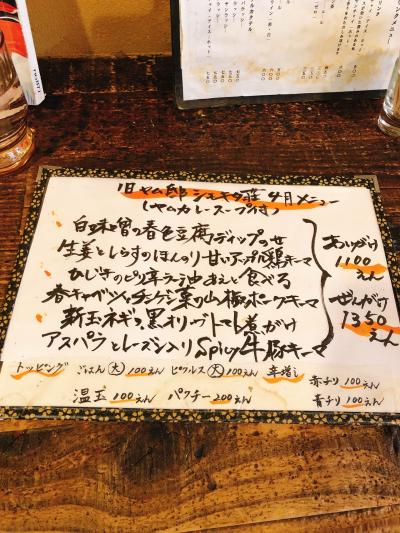 旧ヤム邸シモキタ荘 4月メニュー
(ヤムカレースープ付)
白味噌の春色豆腐ディップのせ
生姜としらすのほんのり甘いアップル鶏キーマ
ひじきのピリ辛ラー油あえと食べる
春キャベツとチンゲン菜の山椒ポークキーマ
新玉ネギと黒オリーブトマト煮がけ
アスパラとレーズン入りSpicy牛豚キーマ
あいがけ
1100
えん
ぜんがけ
1350
えん
トッピング ごはん大100えん ピクルス大100えん 辛増し 赤チリ100えん
温玉100えん パクチー200えん 青チリ100えん